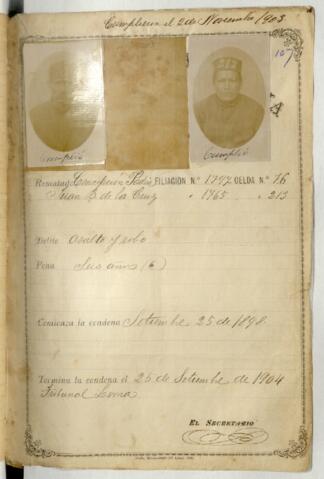 Cumplieron el 2 de Noviembre 1903
Cumplió
Cumplió
Rematado Concepción FILIACIÓN N.º 1797 CELDA N.º 76
Juan B. de la Cruz " 1765 " 213
Delito Asalto y robo
Pena Seis años (6)
Comienza la condena Setiembre 25 de 1898
Termina la condena el 25 de Setiembre de 1904
Tribunal
EL SECRETARIO